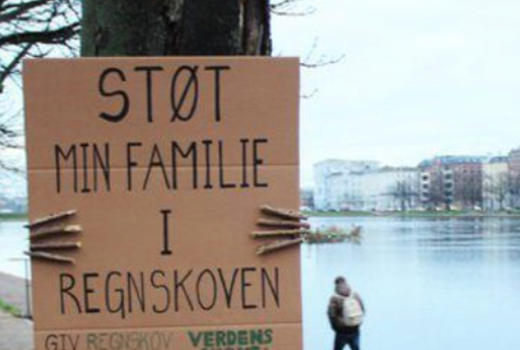 STØT
MIN FAMILIE
I
REGNSKOVEN
GIV REGNSKOV VERDENS